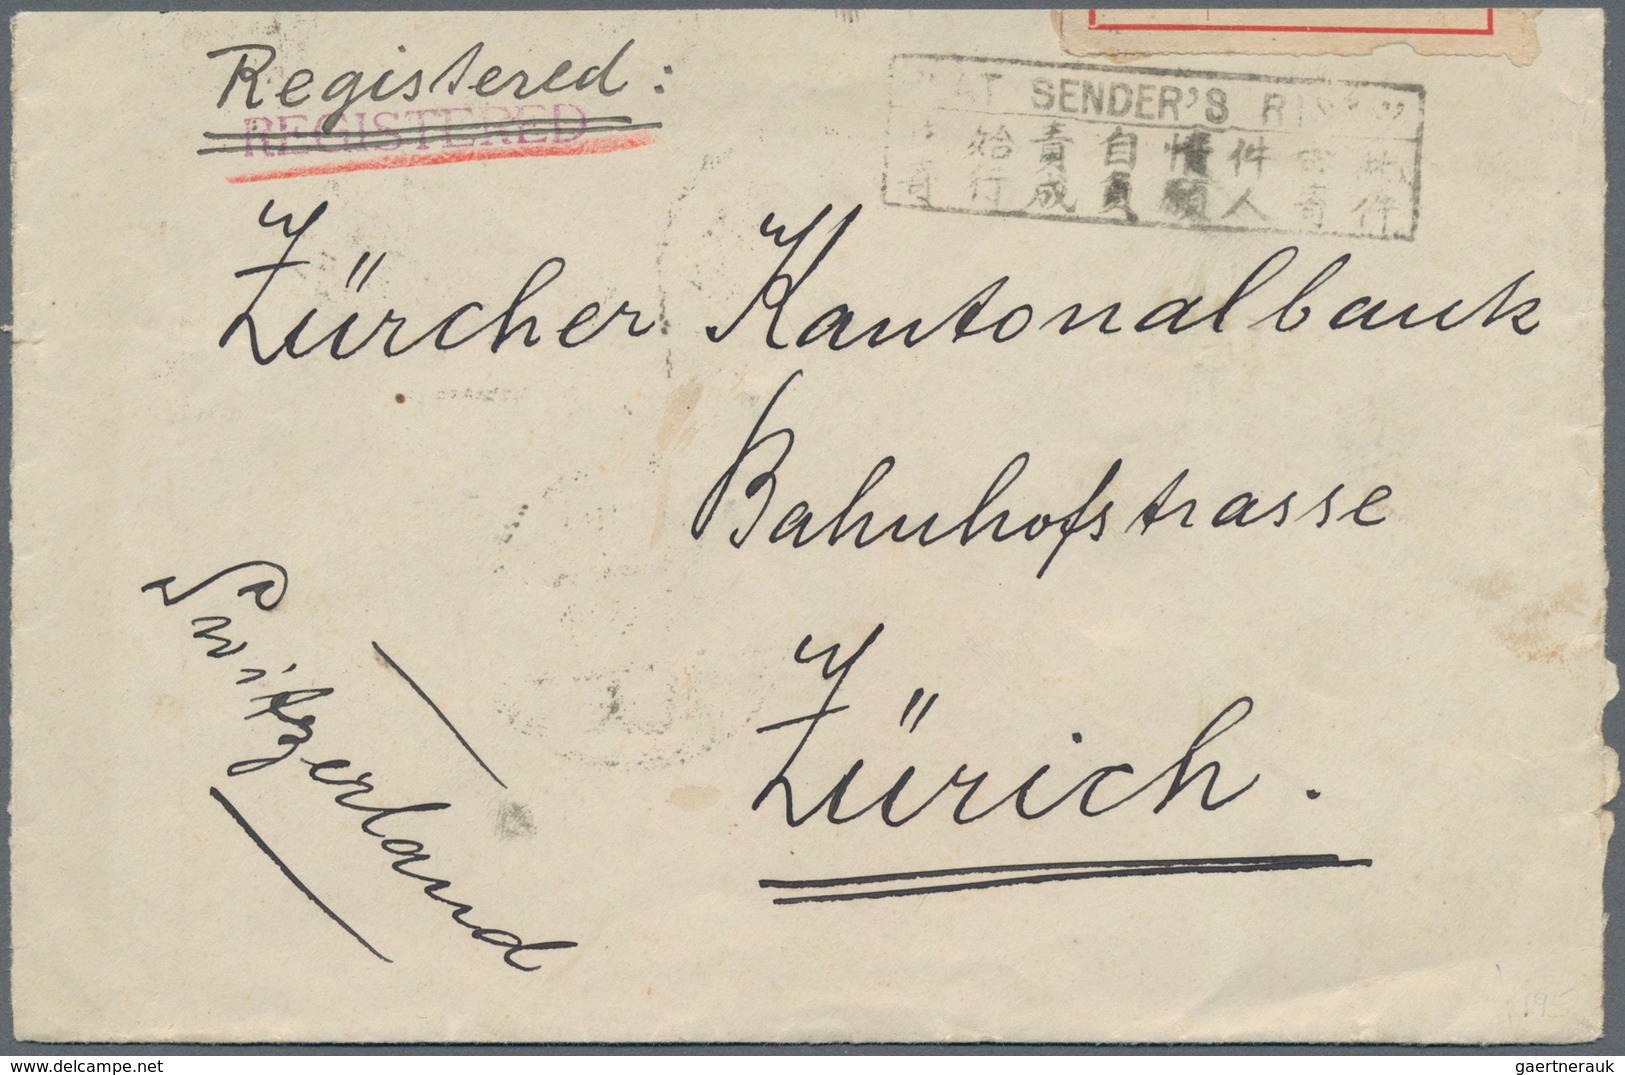 Registered:
REGISTERED
"AT SENDER'S RISK"
始責自情件
寄行成負願人寄件
Zürcher Kantonalbank
Bahnhofstrasse
Zürich.
Switzerland
gaertnerauk